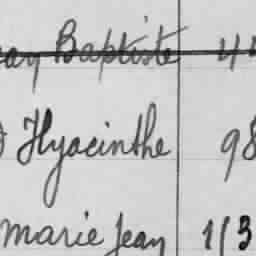 Baptiste 44
Hyacinthe 98
marie Jean 113